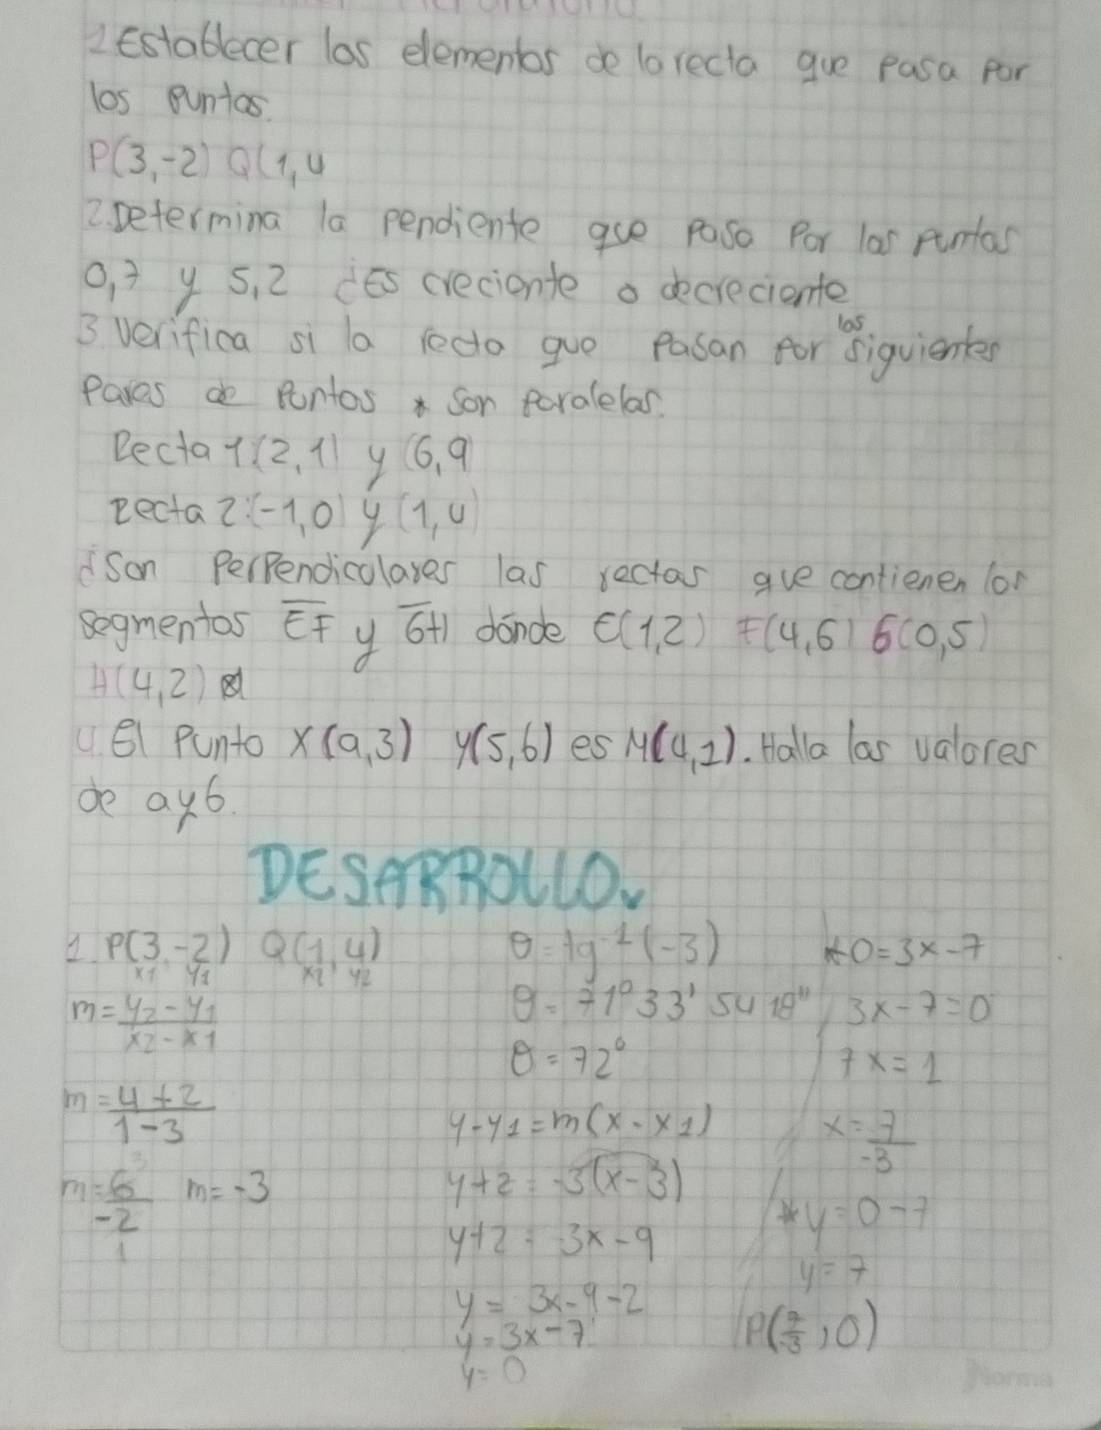 1 Establecer los elementos de la recta que pasa por
los puntos.
P(3,-2) Q(1,4
2. Determina la pendiente que pasa por los puntos
0,7 y 5,2 ¿Es creciente o decreciente
3 Verifica si la recta que pasan por los siguientes
Pares de puntos son paralelas.
Recta 1(2,1) y (6,9)
recta 2:(-1,0) y (1,4)
¿Son Perpendiculares las rectas que contienen los
segmentos EF y GH dónde E(1,2) F(4,6) G(0,5)
H(4,2)
4. El Punto X(a,3) Y(5,6) es M(4,1). Halla los valores
de a y b.
DESARROLLO.
1. P(3,-2) Q(1,4)
x1 y1 x2 y2
m=y2-y1
x2-x1
m=4+2
1-3
m=6 m=-3
-2
1
θ=tg-1(-3)
θ=71° 33' 54 18"
θ=72°
y-y1=m(x-x1)
y+2=-3(x-3)
y+2=3x-9
y=3x-9-2
y=3x-7
y=0
*0=3x-7
3x-7=0
7x=1
x=7
-3
*y=0-7
y=7
P(7/-3,0)
Norma